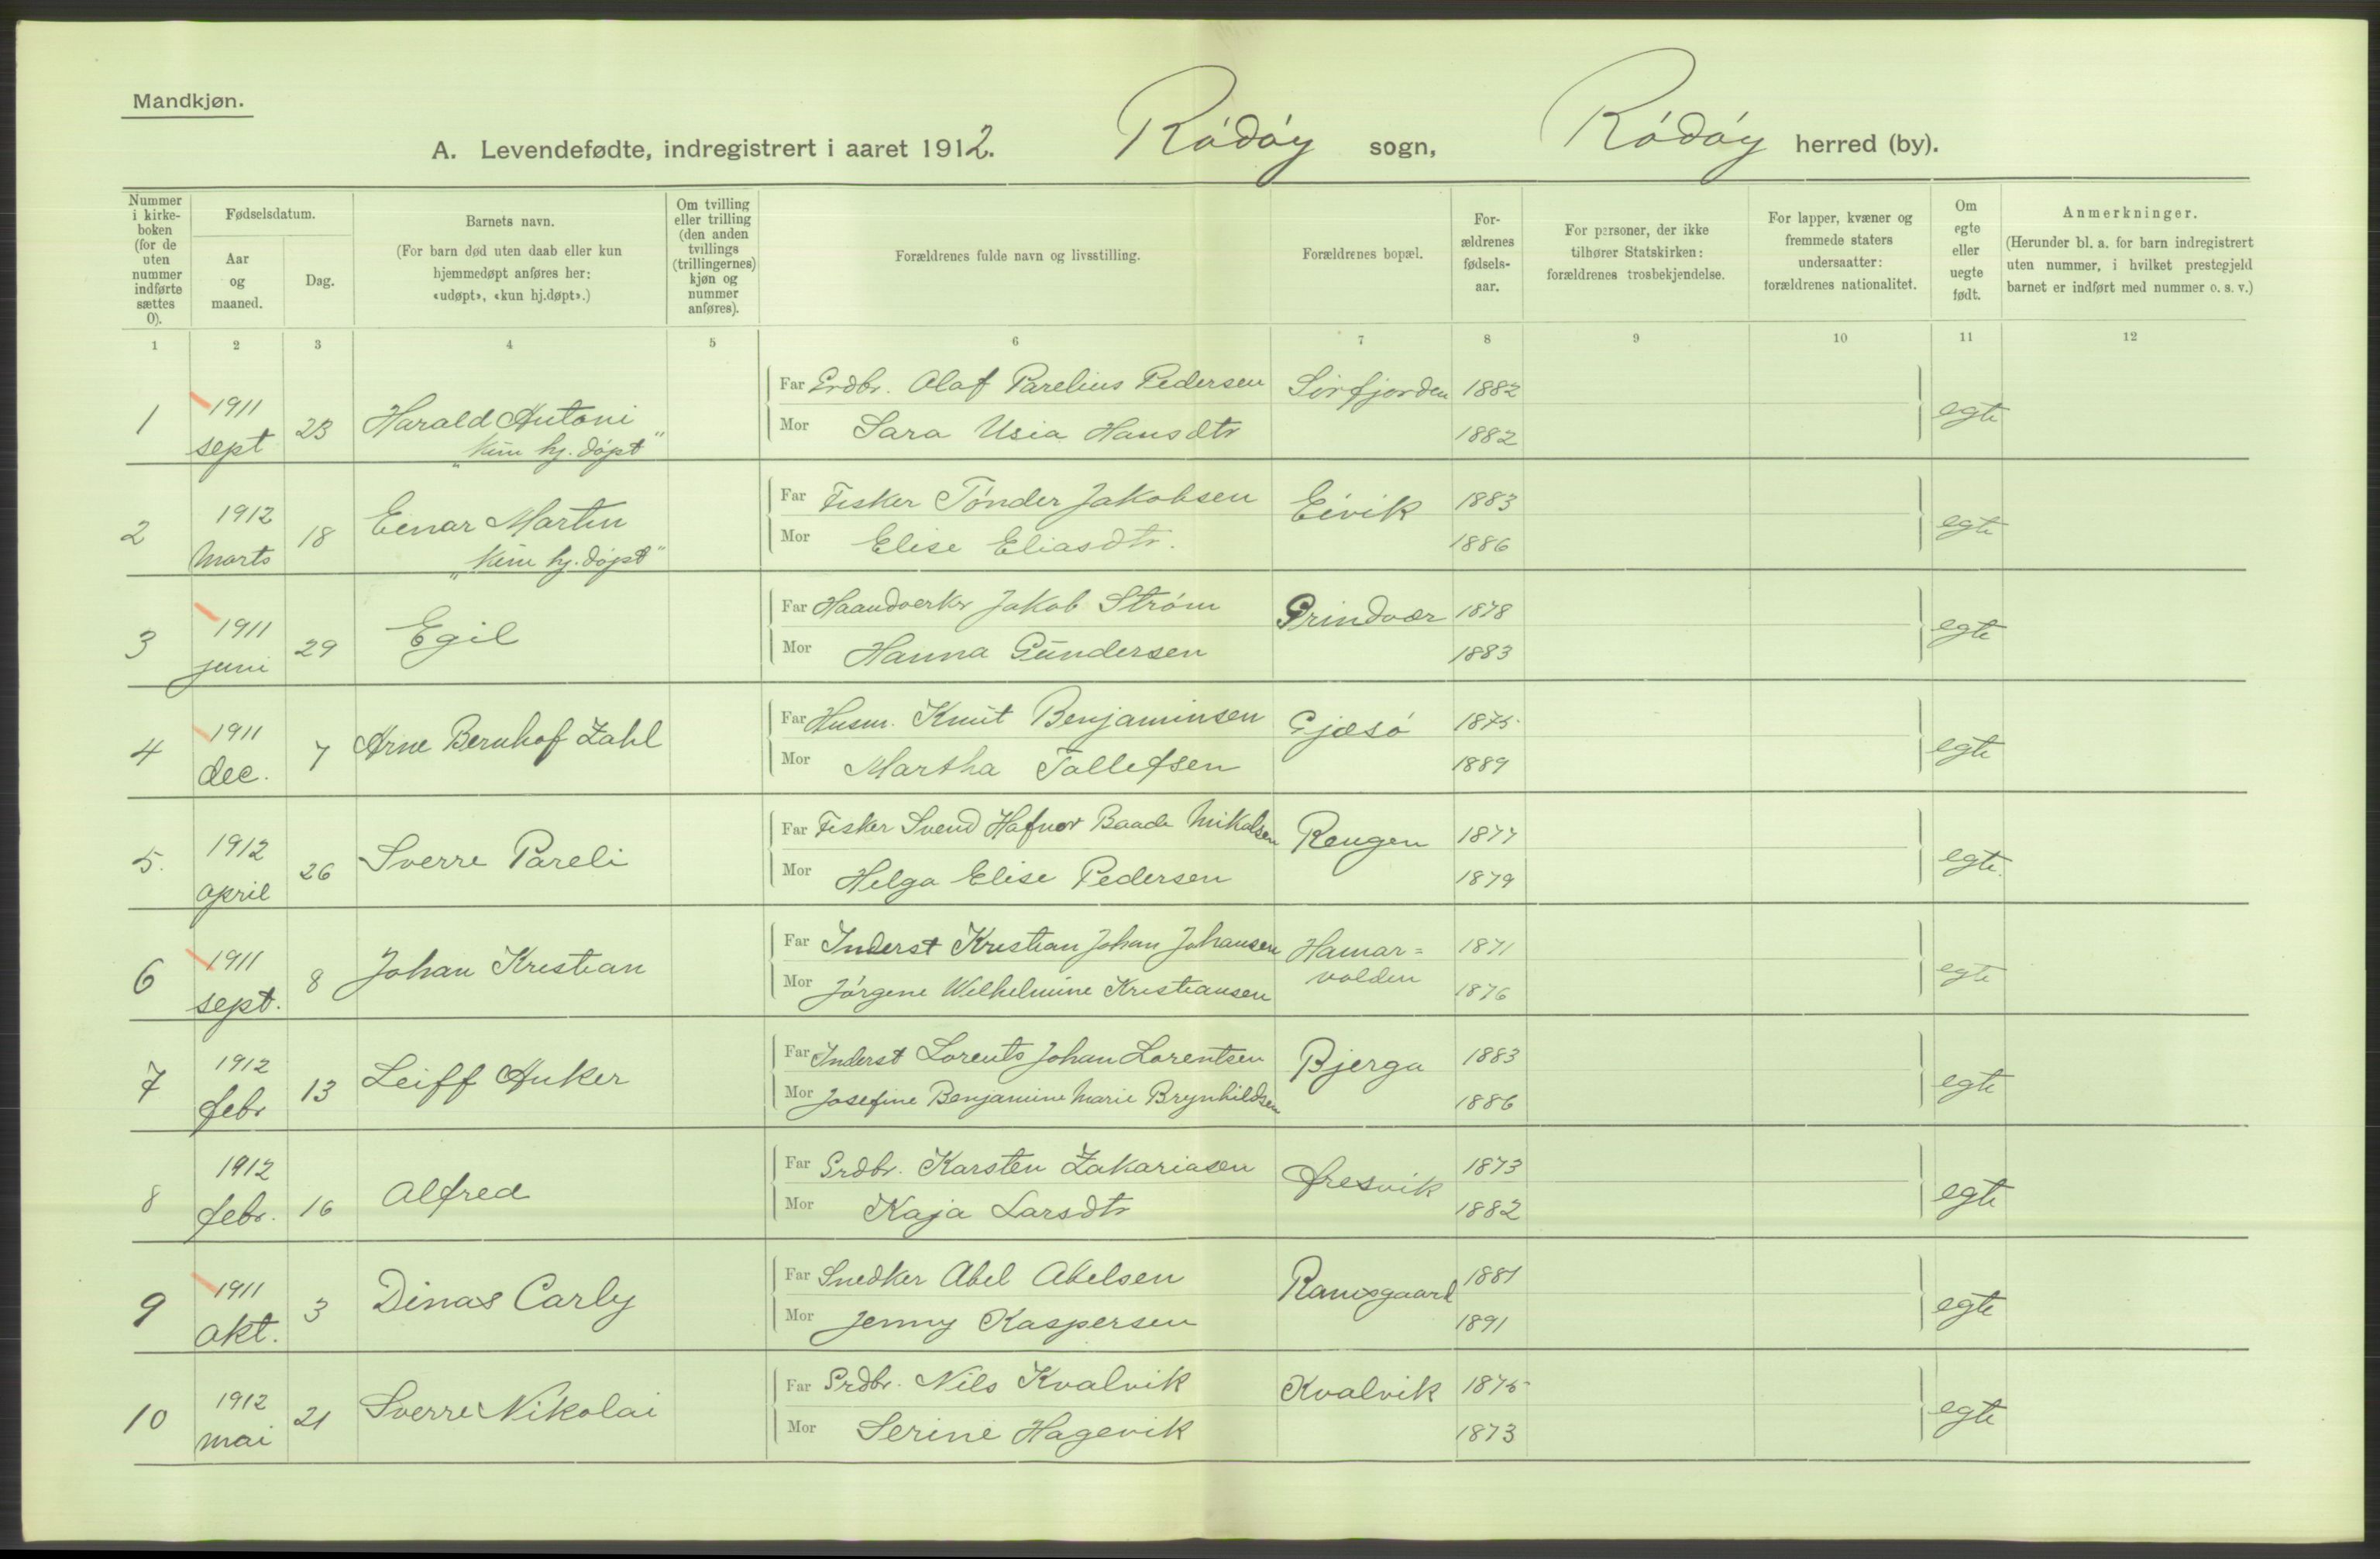 Mandkjøn.
A. Levendefødte, indregistrert i aaret 1912. Ródóy sogn, Ródóy herred (by).
Nummer i kirke-boken (for de uten nummer indførte sættes 0).
Fødselsdatum.
Aar og maaned.
Dag.
Barnets navn.
(For barn død uten daab eller kun hjemmedøpt anføres her: «udøpt», «kun hj.døpt».)
Om tvilling eller trilling (den anden tvillings (trillingernes) kjøn og nummer anføres).
Forældrenes fulde navn og livsstilling.
Forældrenes bopæl.
For-ældrenes fødsels-aar.
For personer, der ikke tilhører Statskirken: forældrenes trosbekjendelse.
For lapper, kvæner og fremmede staters undersaatter: forældrenes nationalitet.
Om egte eller uegte født.
Anmerkninger.
(Herunder bl. a. for barn indregistrert uten nummer, i hvilket prestegjeld barnet er indført med nummer o. s. v.)
1 2 3 4 5 6 7 8 9 10 11 12
1 1911 sept 23 Harald Antoni „kun hj. dópt" Far Grdbr. Olaf Parelius Pedersen Sórfjorden 1882 egte
Mor Sara Usia Hansdtr 1882
2 1912 Marts 18 Einar Martin „kun hj. dópt" Far Fisker Tónder Jakobsen Eivik 1883 egte
Mor Elise Eliasdtr. 1886
3 1911 juni 29 Egil Far Haandverkr Jakob Stróm Grindvær 1878 egte
Mor Hanna Gundersen 1883
4 1911 dec. 7 Arne Bernhof Zahl Far Husm. Knut Benjaminsen Gjæsó 1875 egte
Mor Martha Tollefsen 1889
5. 1912 april 26 Sverre Pareli Far Fisker Svend Hafnor Baade Mikalsen Rengen 1877 egte.
Mor Helga Elise Pedersen 1879
6 1911 sept. 8 Johan Kristian Far Inderst Kristian Johan Johansen Hamar= volden 1871 egte
Mor Jórgine Wilhelmine Kristiansen 1876
7 1912 febr 13 Leiff Anker Far Inderst Lorents Johan Lorentsen Bjerga 1883 egte
Mor Josefine Benjamine Marie Brynhildsen 1886
8 1912 febr. 16 Alfred Far Grdbr. Karsten Zakariasen Øresvik 1873 egte
Mor Kaja Larsdtr 1882
9 1911 okt. 3 Dinas Carly Far Snedker Abel Abelsen Ramsgaard 1881 egte
Mor Jenny Kaspersen 1891
10 1912 mai 21 Sverre Nikolai Far Grdbr. Nils Kvalvik Kvalvik 1875 egte
Mor Serine Hagevik 1873